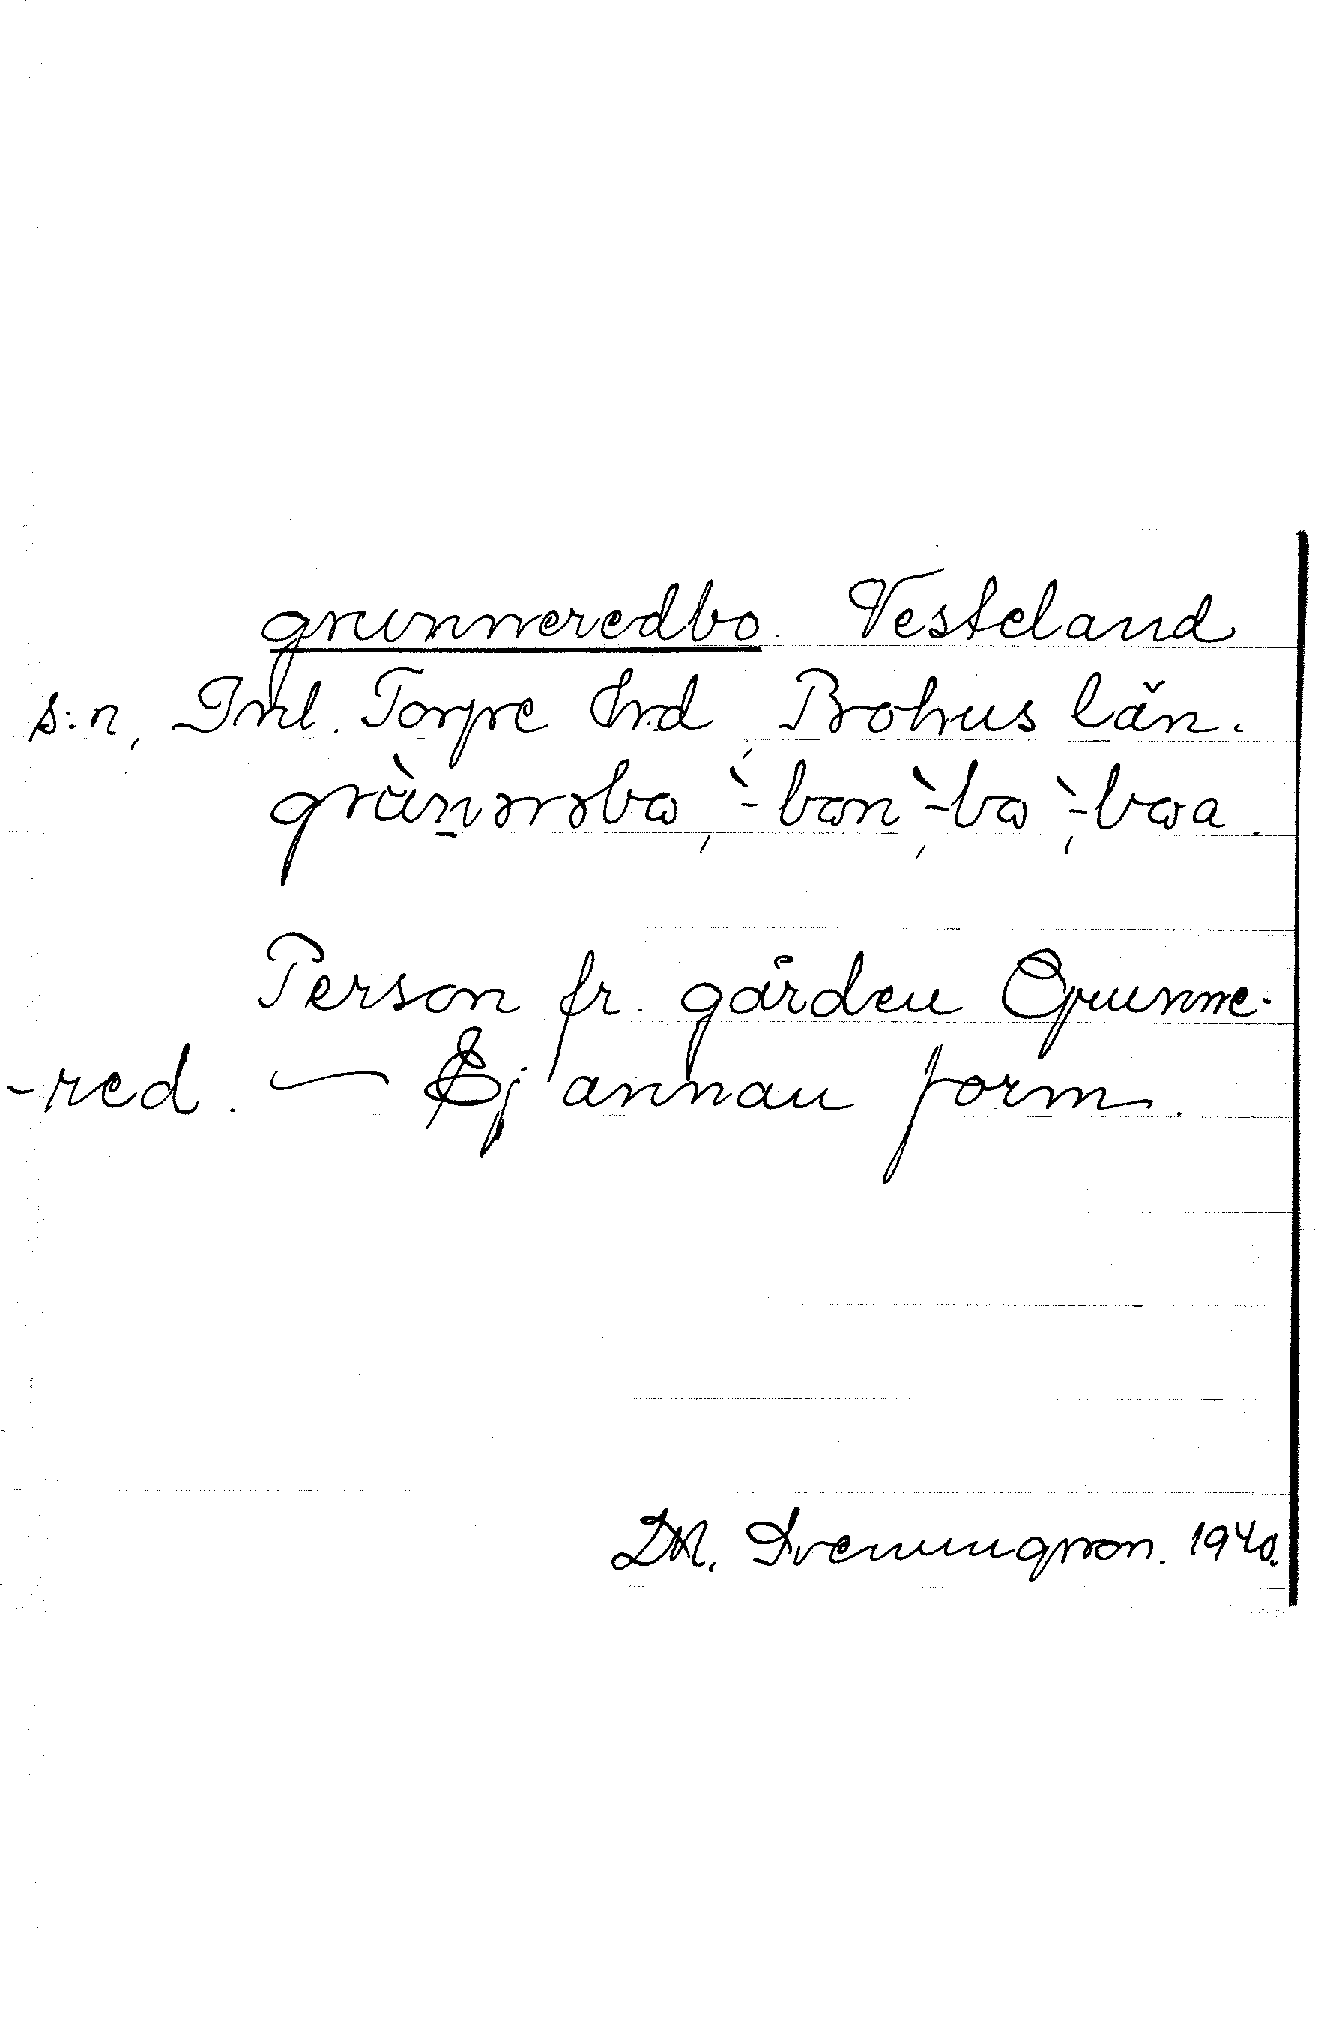 grunneredbo. Vesteland
s:n, Inl. Torpe hrd, Bohus län.
Person fr. gården Grunne-
-red. — Ej annan form.
D.N. Svenningson. 1940.